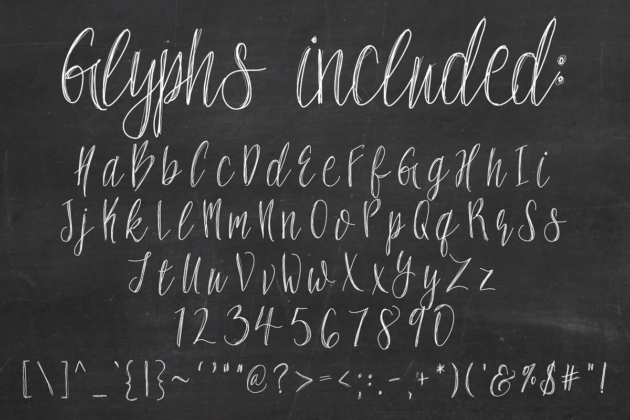 Glyphs included:
AaBbCcDdEeFfGgHhIi
JjKkLlMmNnOoPpQqRrSs
TtUuVvWwXxYyZz
1234567890
[\]^_`{|}~‘’“”@?>=<;:.-,+*)('&%$#"!